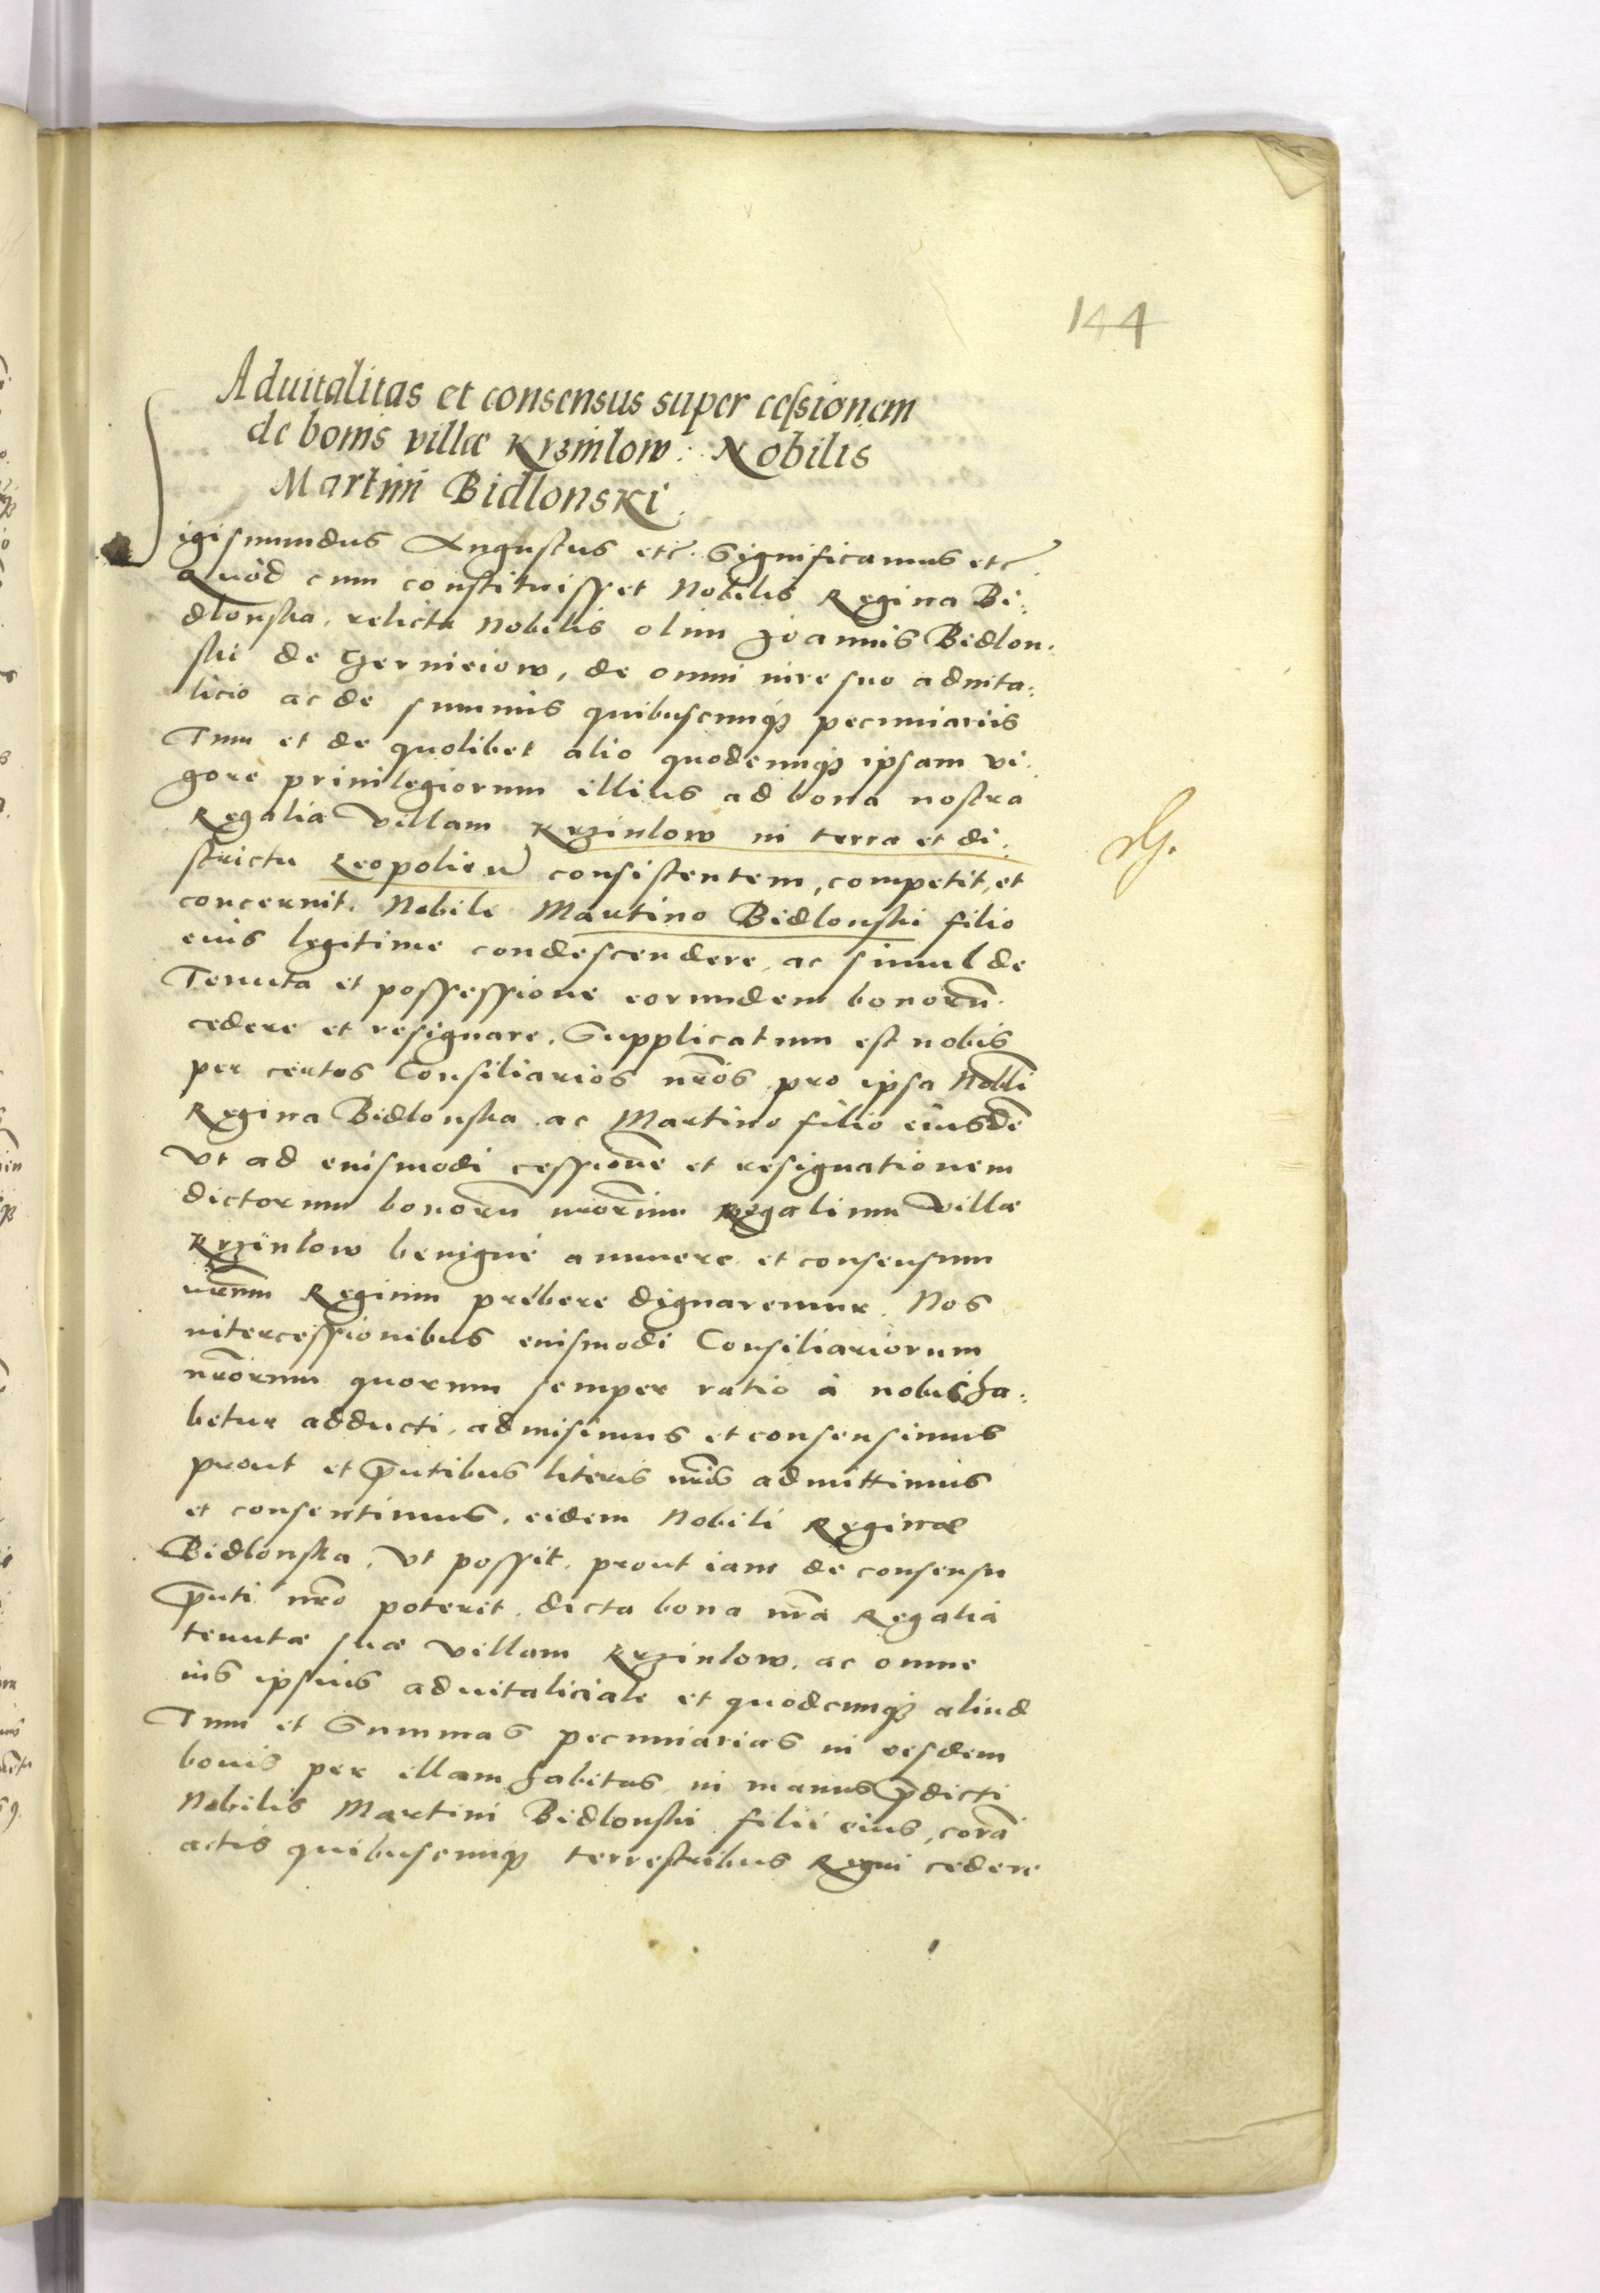 144
Aduitalitas et consensus super cessionem
de bonis villæ Krzinlow: Nobilis
Martini Bidlonski.
Sigismundus Augustus etc. Significamus etc.
Quòd cum constituisset Nobilis Regina Bi:
dlonska, relicta Nobilis olim Joannis Bidlon:
ski de Czernieiow, de omni iure suo aduita:
licio ac de summis quibuscunqȝ pecuniariis
Tum et de quolibet alio quodcunqȝ ipsam vi:
gore priuilegiorum illius ad bona nostra
Regalia Villam Krzinlow in terra et di:
strictu Leopolien consistentem, competit, et
concernit. Nobili Martino Bidlonski filio
eius legitime condescendere, ac simul de
Tenuta et possessione eorundem bonorū
cedere et resignare. Supplicatum est nobis
per certos Consiliarios nr̄os pro ipsa Nobli
Regina Bidlonska ac Martino filio eiusdē
Vt ad euismodi cessionē et resignationem
dictorum bonorū nr̄orum Regalium Villæ
Krzinlow benignè annuere et consensum
nr̄um Regium prébere dignaremur. Nos
intercessionibus euismodi Consiliariorum
nr̄orum quorum semper ratio à nobis ha:
betur adducti, admisimus et consensimus
prout et p̄ntibus literis nr̄is admittimus
et consentimus, eidem Nobili Reginæ
Bidlonska, Vt possit, prout iam de consensu
p̄nti nr̄o poterit, dicta bona nr̄a Regalia
tenutæ suæ Villam Krzinlow, ac omne
ius ipsius aduitaliciale et quodcunqȝ aliud
Tum et Summas pecuniarias in eisdem
bonis per illam habitas in manus p̄dicti
Nobilis Martini Bidlonski filii eius, corā
actis quibuscunqȝ terrestribus Regni cedere